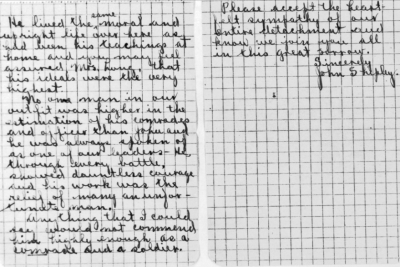 same
He lived the moral and
upright life over here as
had been his teachings at
home and you may feel
assured Mrs. that
his ideals were the very
highest.
No one man in our
unit was higher in the
estimation of his comrades
and officers than yours and
he was always spoken of
as one of our leaders - He
through every battle,
showed dauntless courage
and his work was the
relief of many an unfor-
tunate man.
Anything that I could
say would not commend
him highly enough as a
comrade and a soldier.
Please accept the heart-
felt sympathy of our
entire detachment and
know we join you all
in this great sorrow.
Sincerely
John Shepley.